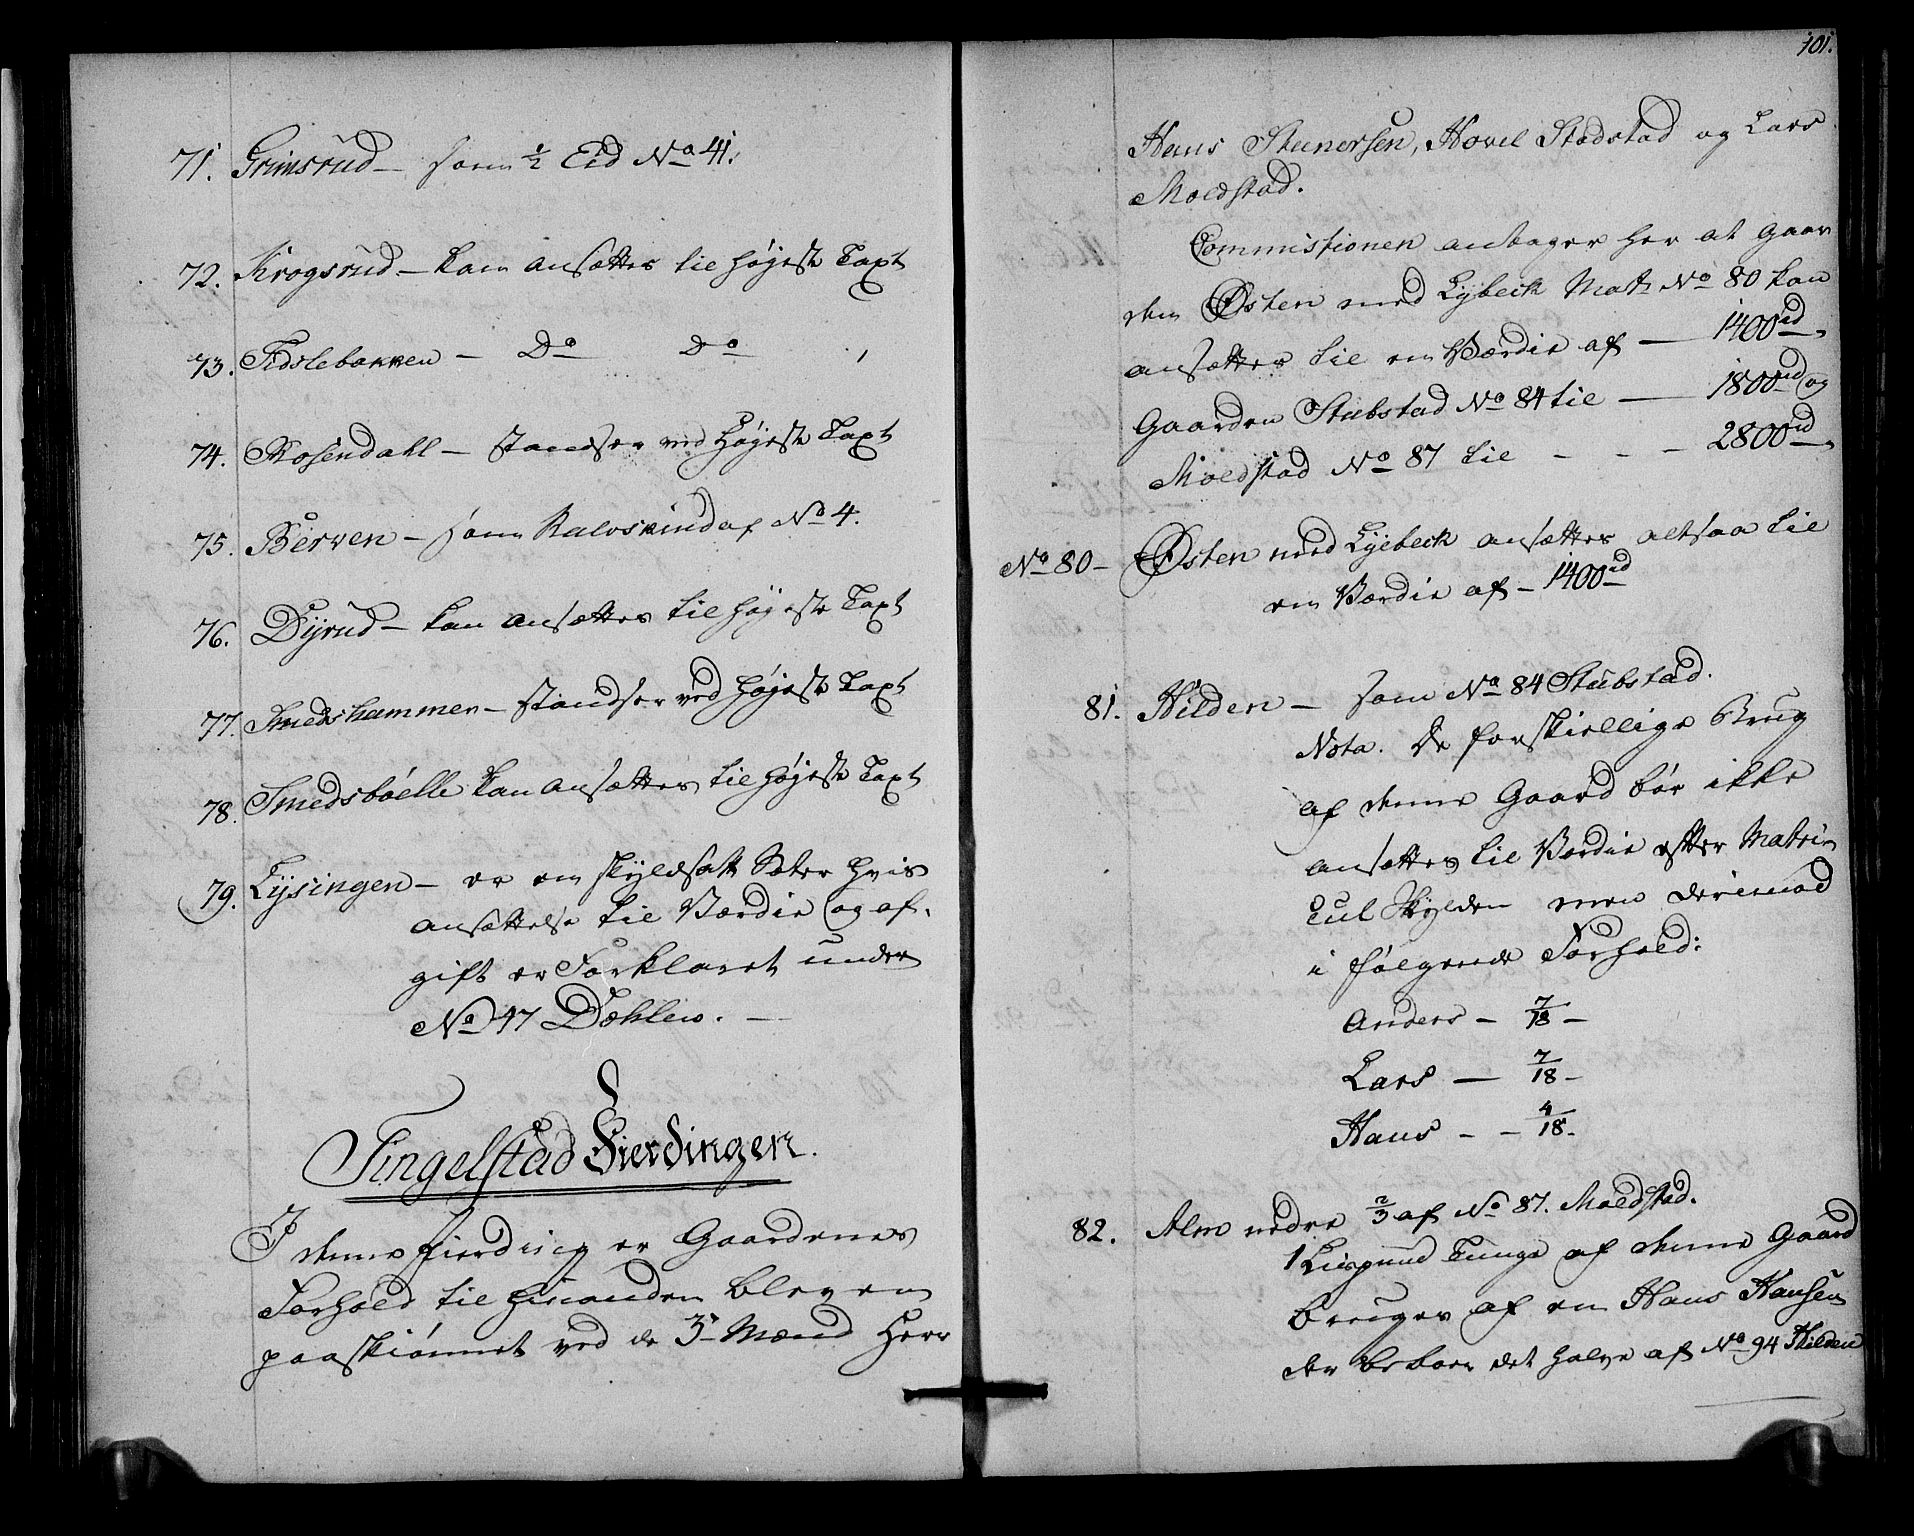 71. Grimsrud — som ½ Eid No 41.
72. Krogsrud — kan ansættes til højeste Taxt
73. Tidslebakken — Do Do
74. Rosendahl — standser ved højeste Taxt
75. Berven — som Kalvskind af No 4.
76. Dyrud — kan ansættes til højeste Taxt
77. Smedshammer — standser ved højeste Taxt
78. Smedsbøelle kan ansættes til højeste Taxt
79. Lysingen — er en skyldsatt Sæter hvis
ansættelse til Værdie og af-
gift er Forklaret under
No 47 Dæhlen. —
Tingelstad Fierdingen.
I denne fierding er Gaardenes
Forhold til hinanden bleven
paaskiønnet ved de 3de Mænd Herr
101.
Hans Stenersen, Hovel Stadstad og Lars
Moldstad.
Commistionen antager her at Gaar
den Østen med Lybeck Mat: No 80 kan
ansættes til en Værdie af — 1400rd,
Gaarden Stubstad No 84 til — 1800rd og
Moldstad No 87 til - - - 2800rd,
No 80 — Østen med Lybeck ansættes altsaa til
en Værdie af — 1400rd
81. Hilden — som No 84 Stubstad.
Nota. De forskiellige Brug
af denne Gaard bør ikke
ansættes til Værdie efter Matri-
cul Skylden men derimod
i følgende Forhold:
Anders — 7/18 —
Lars — 7/18 —
Hans - - 4/18 -
82. Alm nedre 2/3 af No 87. Moldstad.
1 Lispund Tunge af denne Gaard
bruges af en Hans Hansen
der beboer det halve af No 94 Hilden